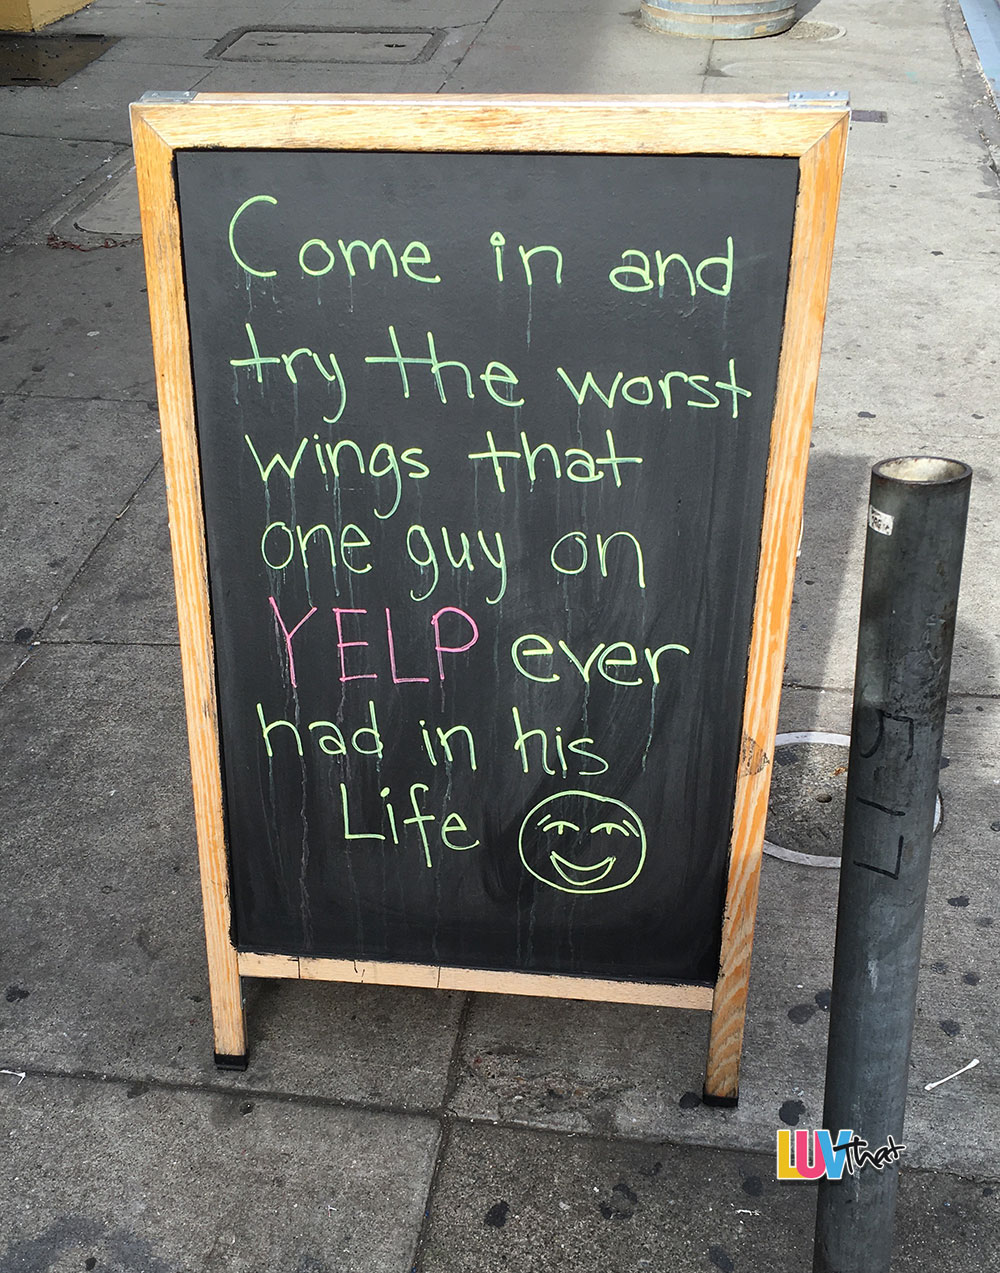 Come in and
try the worst
wings that
one guy on
YELP ever
had in his
Life
LUV that